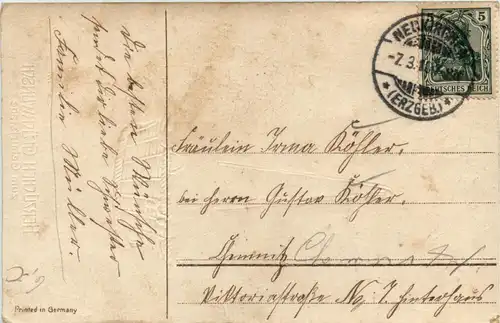 Die besten Wünsche
sendet Dir liebe Schwester
Familie Müller.
Fräulein Irma Köhler.
bei Herrn Gustav Köhler.
Chemnitz
Viktoriastraße No 7. Hinterhaus
-7.3.
(ERZGEB)
5
DEUTSCHES REICH
Printed in Germany